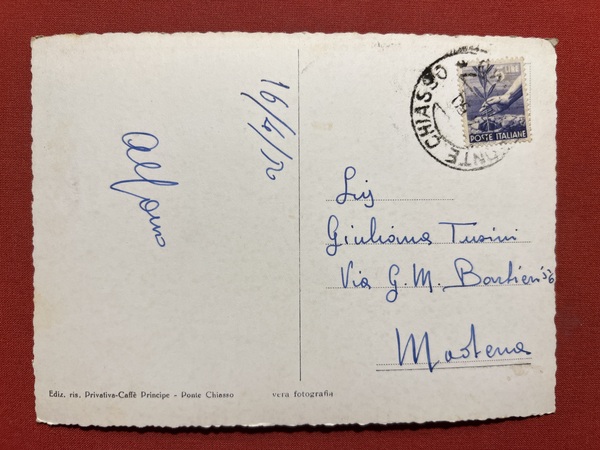 16/4/52
Alfonso
15 LIRE
POSTE ITALIANE
PONTE CHIASSO
Giuliana Tusini
Via G. M. Barbieri 56
Modena
Ediz. ris. Privativa-Caffè Principe - Ponte Chiasso
vera fotografia